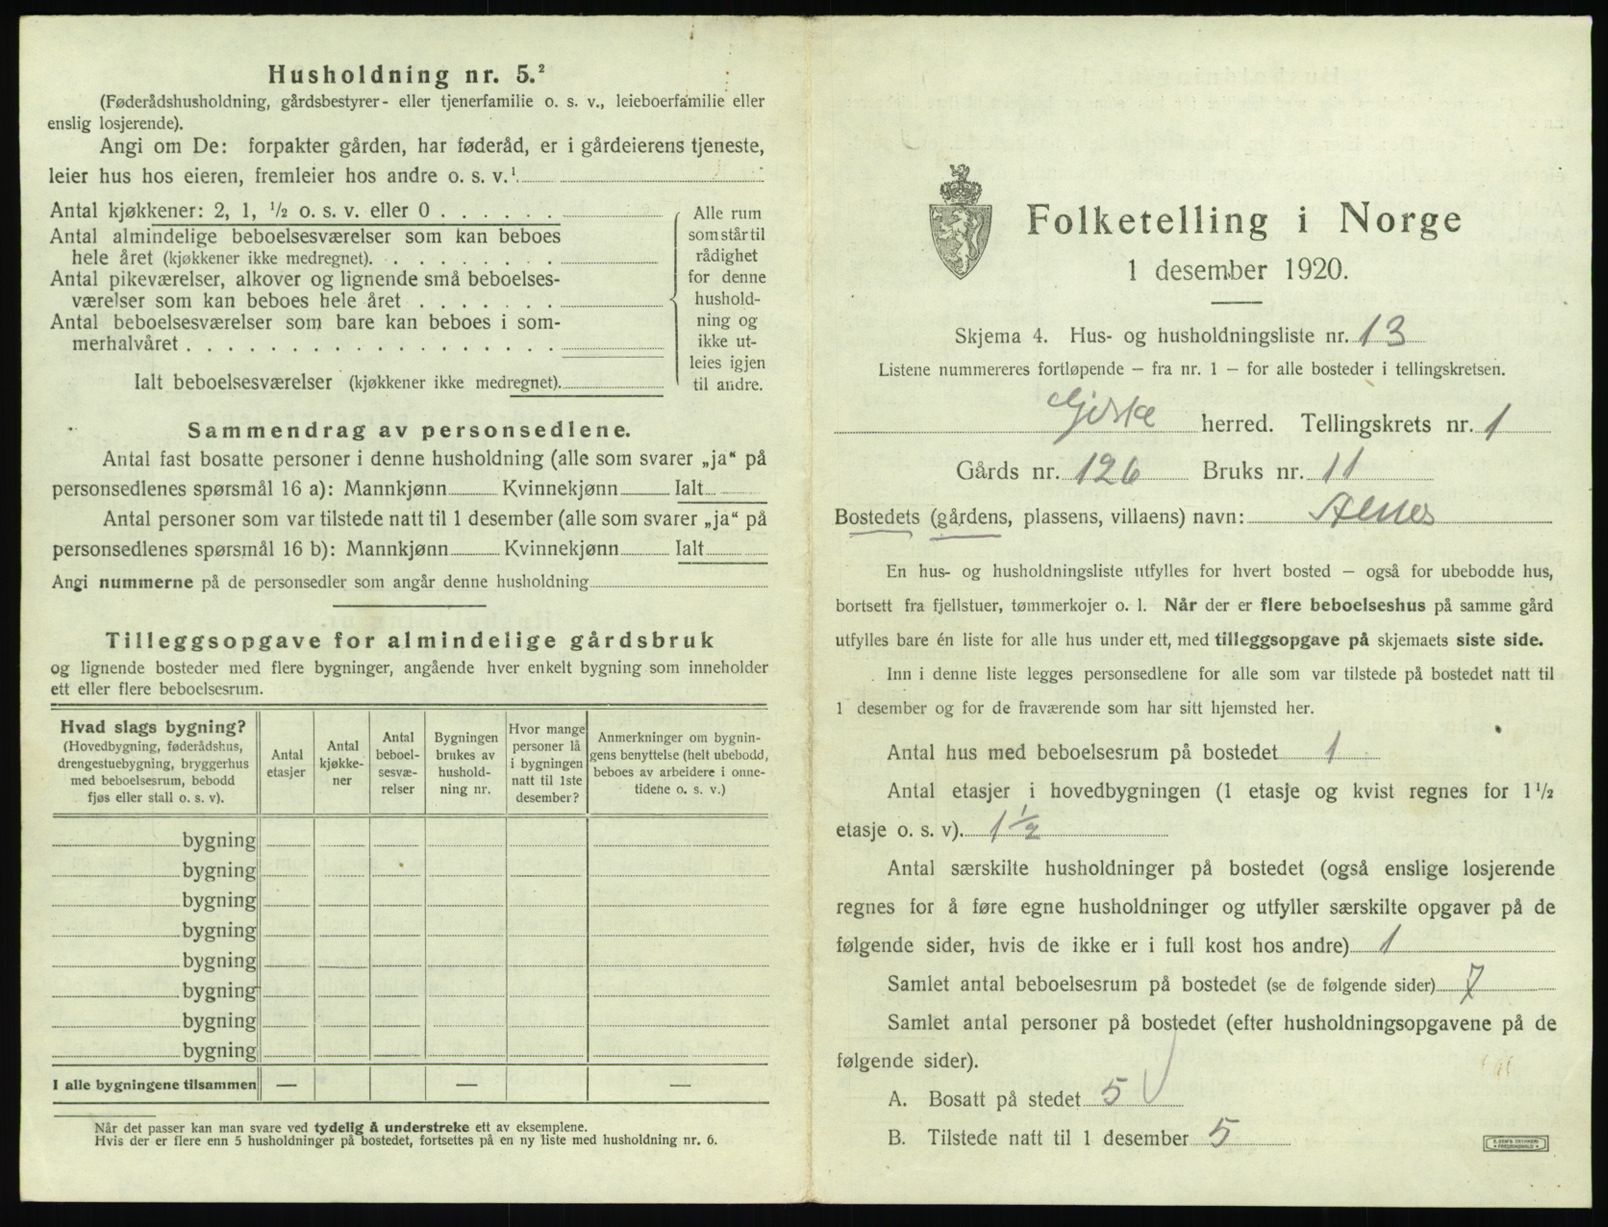 Husholdning nr. 5.²
(Føderådshusholdning, gårdsbestyrer- eller tjenerfamilie o. s. v., leieboerfamilie eller
enslig losjerende).
Angi om De: forpakter gården, har føderåd, er i gårdeierens tjeneste,
leier hus hos eieren, fremleier hos andre o. s. v.¹
Antal kjøkkener: 2, 1, ½ o. s. v. eller 0
Antal almindelige beboelsesværelser som kan beboes
hele året (kjøkkener ikke medregnet).
Antal pikeværelser, alkover og lignende små beboelses-
værelser som kan beboes hele året
Antal beboelsesværelser som bare kan beboes i som-
merhalvåret
Ialt beboelsesværelser (kjøkkener ikke medregnet).
Alle rum
som står til
rådighet
for denne
hushold-
ning og
ikke ut-
leies igjen
til andre.
Sammendrag av personsedlene.
Antal fast bosatte personer i denne husholdning (alle som svarer „ja“ på
personsedlenes spørsmål 16 a): Mannkjønn Kvinnekjønn Ialt
Antal personer som var tilstede natt til 1 desember (alle som svarer „ja“ på
personsedlenes spørsmål 16 b): Mannkjønn Kvinnekjønn Ialt
Angi nummerne på de personsedler som angår denne husholdning
Tilleggsopgave for almindelige gårdsbruk
og lignende bosteder med flere bygninger, angående hver enkelt bygning som inneholder
ett eller flere beboelsesrum.
Hvad slags bygning?
(Hovedbygning, føderådshus,
drengestuebygning, bryggerhus
med beboelsesrum, bebodd
fjøs eller stall o. s. v).
Antal
etasjer
Antal
kjøkke-
ner
Antal
beboel-
sesvæ-
relser
Bygningen
brukes av
hushold-
ning nr.
Hvor mange
personer lå
i bygningen
natt til 1ste
desember?
Anmerkninger om bygnin-
gens benyttelse (helt ubebodd,
beboes av arbeidere i onne-
tidene o. s. v.)
bygning
bygning
bygning
bygning
bygning
bygning
bygning
bygning
I alle bygningene tilsammen — — —
Når det passer kan man svare ved tydelig å understreke ett av eksemplene.
Hvis der er flere enn 5 husholdninger på bostedet, fortsettes på en ny liste med husholdning nr. 6.
Folketelling i Norge
1 desember 1920.
Skjema 4. Hus- og husholdningsliste nr. 13
Listene nummereres fortløpende — fra nr. 1 — for alle bosteder i tellingskretsen.
Giske herred. Tellingskrets nr. 1
Gårds nr. 126 Bruks nr. 11
Bostedets (gårdens, plassens, villaens) navn: Alnes
En hus- og husholdningsliste utfylles for hvert bosted — også for ubebodde hus,
bortsett fra fjellstuer, tømmerkojer o. l. Når der er flere beboelseshus på samme gård
utfylles bare én liste for alle hus under ett, med tilleggsopgave på skjemaets siste side.
Inn i denne liste legges personsedlene for alle som var tilstede på bostedet natt til
1 desember og for de fraværende som har sitt hjemsted her.
Antal hus med beboelsesrum på bostedet 1
Antal etasjer i hovedbygningen (1 etasje og kvist regnes for 1½
etasje o. s. v). 1½
Antal særskilte husholdninger på bostedet (også enslige losjerende
regnes for å føre egne husholdninger og utfyller særskilte opgaver på de
følgende sider, hvis de ikke er i full kost hos andre) 1
Samlet antal beboelsesrum på bostedet (se de følgende sider) 7
Samlet antal personer på bostedet (efter husholdningsopgavene på de
følgende sider).
A. Bosatt på stedet 5
B. Tilstede natt til 1 desember 5